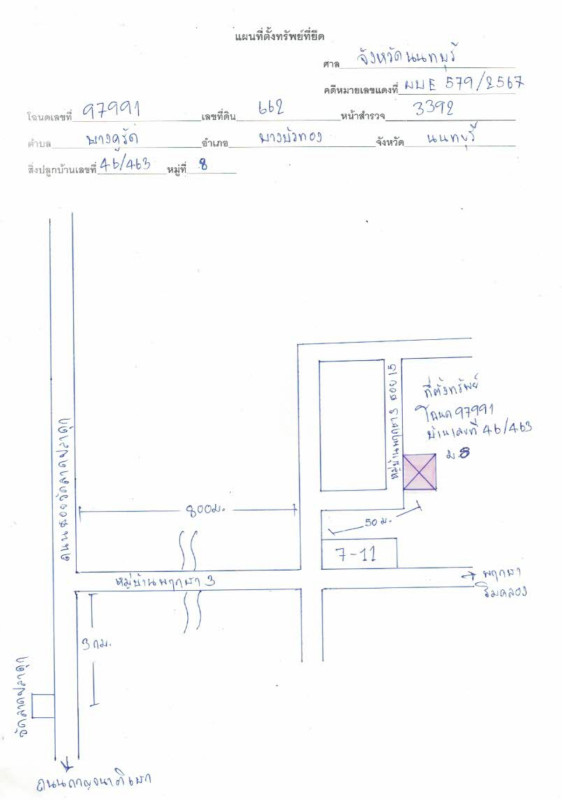 แผนที่ตั้งทรัพย์ที่ยึด
ศาล จังหวัดนนทบุรี
คดีหมายเลขแดงที่ ผบE 579/2567
โฉนดเลขที่ 97991 เลขที่ดิน 662 หน้าสำรวจ 3392
ตำบล บางคูรัด อำเภอ บางบัวทอง จังหวัด นนทบุรี
สิ่งปลูกบ้านเลขที่ 46/463 หมู่ที่ 8
ถนนซอยวัดลาดปลาดุก
หมู่บ้านพฤกษา 3 ซอย 15
ที่ตั้งทรัพย์
โฉนด 97991
บ้านเลขที่ 46/463
ม 8
800 ม.
50 ม.
7-11
หมู่บ้านพฤกษา 3
พฤกษา
ริมคลอง
3 กม.
วัดลาดปลาดุก
ถนนกาญจนาภิเษก